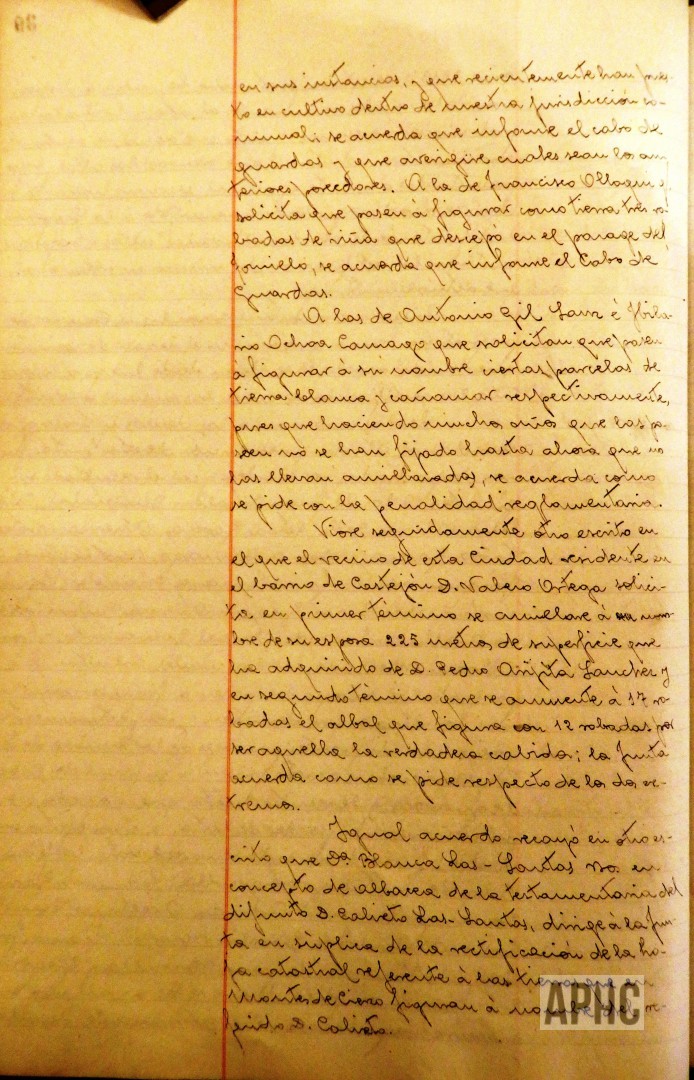 en sus instancias, y que recientemente han pues-
to en cultivo dentro de nuestra jurisdicción co-
munal; se acuerda que informe el cabo de
guardas y que averigüe cuales sean los an-
teriores poseedores. A la de Francisco Ollaquin-
solicita que pasen á figurar como tierra tres ro-
badas de viña que descepó en el parage del
se acuerda que informe el Cabo de
Guardas.
A las de Antonio Gil Sanz é Hila-
rio Ochoa Camago que solicitan que pasen
á figurar á su nombre ciertas parcelas de
tierra blanca y cañamar respectivamente,
pues que haciendo muchos años que las po-
seen no se han fijado hasta ahora que no
las llevan amillaradas, se acuerda como
se pide con la penalidad reglamentaria.
Vióse seguidamente otro escrito en
el que el vecino de esta Ciudad residente en
el barrio de Castejón D. Valero Ortega solici-
ta en primer término se amillare á nom-
bre de su esposa 225 metros de superficie que
ha adquirido de D. Pedro Sanchez y
en segundo término que se aumente á 17 ro-
badas el albal que figura con 12 robadas por
ser aquella la verdadera cabida; la Junta
acuerda como se pide respecto de los dos ex-
tremos.
Igual acuerdo recayó en otro es-
crito que Dª. Blanca Las-Santas en
concepto de albacea de la testamentaria del
difunto D. Calixto Las-Santas, dirige á la Jun-
ta en súplica de la rectificación de la ho-
ja catastral referente á las tierras que en
Montes de Cierzo figuran á nombre del re-
ferido D. Calixto.
39
APHC